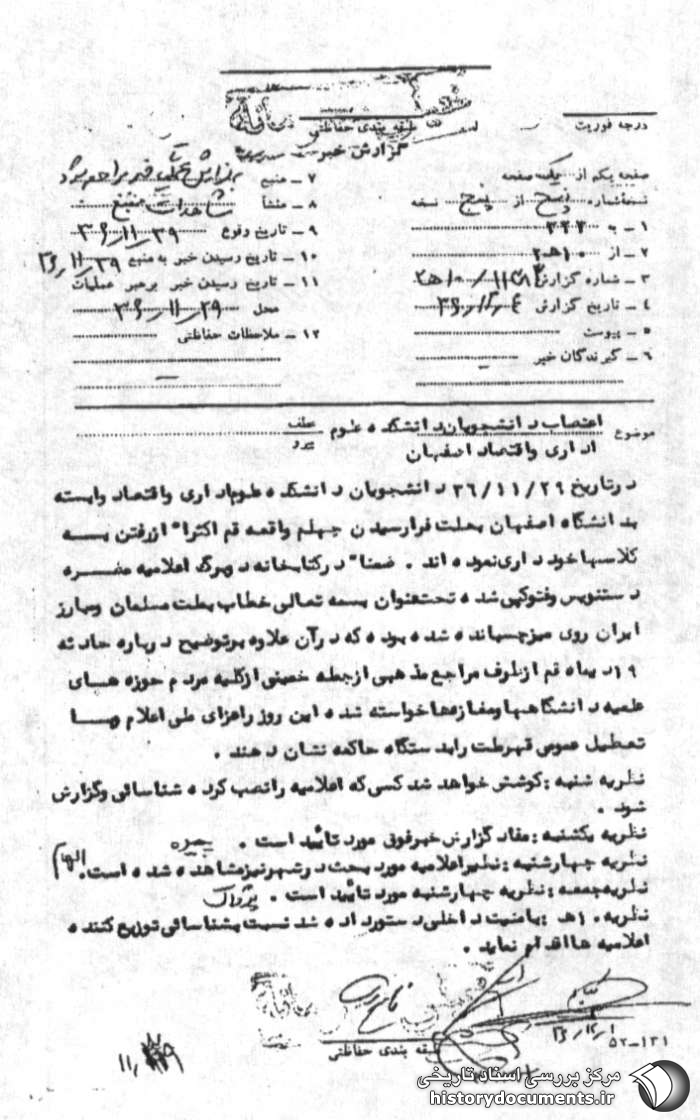 طبقه بندی حفاظتی
درجه فوریت
گزارش خبر
صفحه یکم از یک صفحه
نسخه شماره پنج از پنج نسخه
۱ – به ۳۴۲
۲ – از ۱۰ه‍
۳ – شماره گزارش
۴ – تاریخ گزارش
۵ – پیوست
۶ – گیرندگان خبر
۷ – منبع
۸ – منشأ مشاهدات منبع
۹ – تاریخ وقوع ۳۶/۱۱/۲۹
۱۰ – تاریخ رسیدن خبر به منبع ۳۶/۱۱/۲۹
۱۱ – تاریخ رسیدن خبر برهبر عملیات
محل ۳۶/۱۱/۲۹
۱۲ – ملاحظات حفاظتی
موضوع اعتصاب دانشجویان دانشکده علوم
اداری واقتصاد اصفهان
عطف
پیرو
در تاریخ ۳۶/۱۱/۲۹ دانشجویان دانشکده علوم اداری واقتصاد وابسته
بدانشگاه اصفهان بعلت فرارسیدن چهلم واقعه قم اکثرا" از رفتن بسه
کلاسها خودداری نموده اند . ضمنا" در کتابخانه دوبرگ اعلامیه مضره
دستنویس وفتوکپی شده تحت عنوان بسمه تعالی خطاب بملت مسلمان ومبارز
ایران روی میز چسبانده شده بوده که در آن علاوه بر توضیح درباره حادثه
۱۹ دیماه قم از طرف مراجع مذهبی از جمله خمینی از کلیه مردم حوزه هسای
علمیه دانشگاهها ومغازه ها خواسته شده این روز را عزای ملی اعلام وبسا
تعطیل عمومی قهرملت را بدستگاه حاکمه نشان دهند .
نظریه شنبه : کوشش خواهد شد کسی که اعلامیه را نصب کرده شناسائی وگزارش
شود .
نظریه یکشنبه : مفاد گزارش خبر فوق مورد تائید است .
نظریه چهارشنبه : نظیر اعلامیه مورد بحث در شهر نیز مشاهده شده است . الهام
نظریه جمعه : نظریه چهارشنبه مورد تائید است . پژواک
نظریه ۱۰ه‍ : بامنیت داخلی دستور داده شد نسبت بشناسائی توزیع کننده
اعلامیه ها اقدام نماید .
طبقه بندی حفاظتی
۵۲–۱۳۱
مرکز بررسی اسناد تاریخی
historydocuments.ir